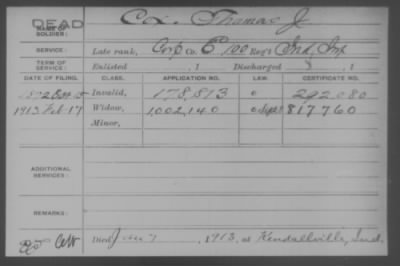 DEAD
NAME OF SOLDIER: Cox Thomas J
SERVICE: Late rank, Corp Co. E 100 Reg't Ind. Inf
TERM OF SERVICE: Enlisted , 1 Discharged , 1
DATE OF FILING. CLASS. APPLICATION NO. LAW. CERTIFICATE NO.
1872 Invalid, 178,813 292080
1913 Feb 17 Widow, 1,002,140 817760
Minor,
ADDITIONAL SERVICES:
REMARKS:
Died Jan 7, 1913, at Kendallville, Ind.